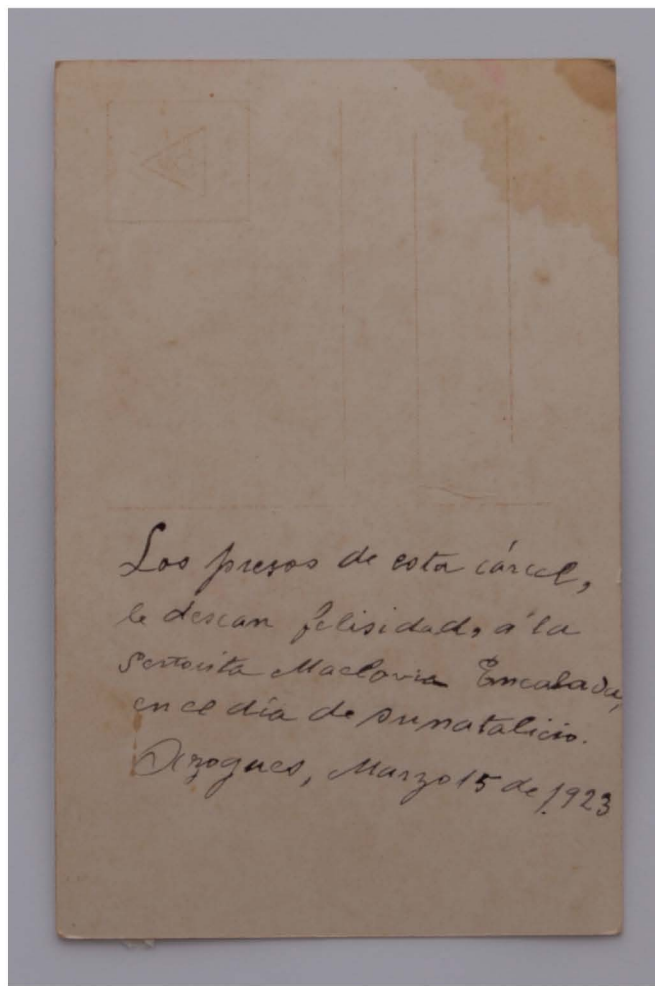 Los presos de esta cárcel,
le desean felisidad, á la
señorita Maclovia Encalada,
en el día de su natalicio.
Azogues, Marzo 15 de 1923